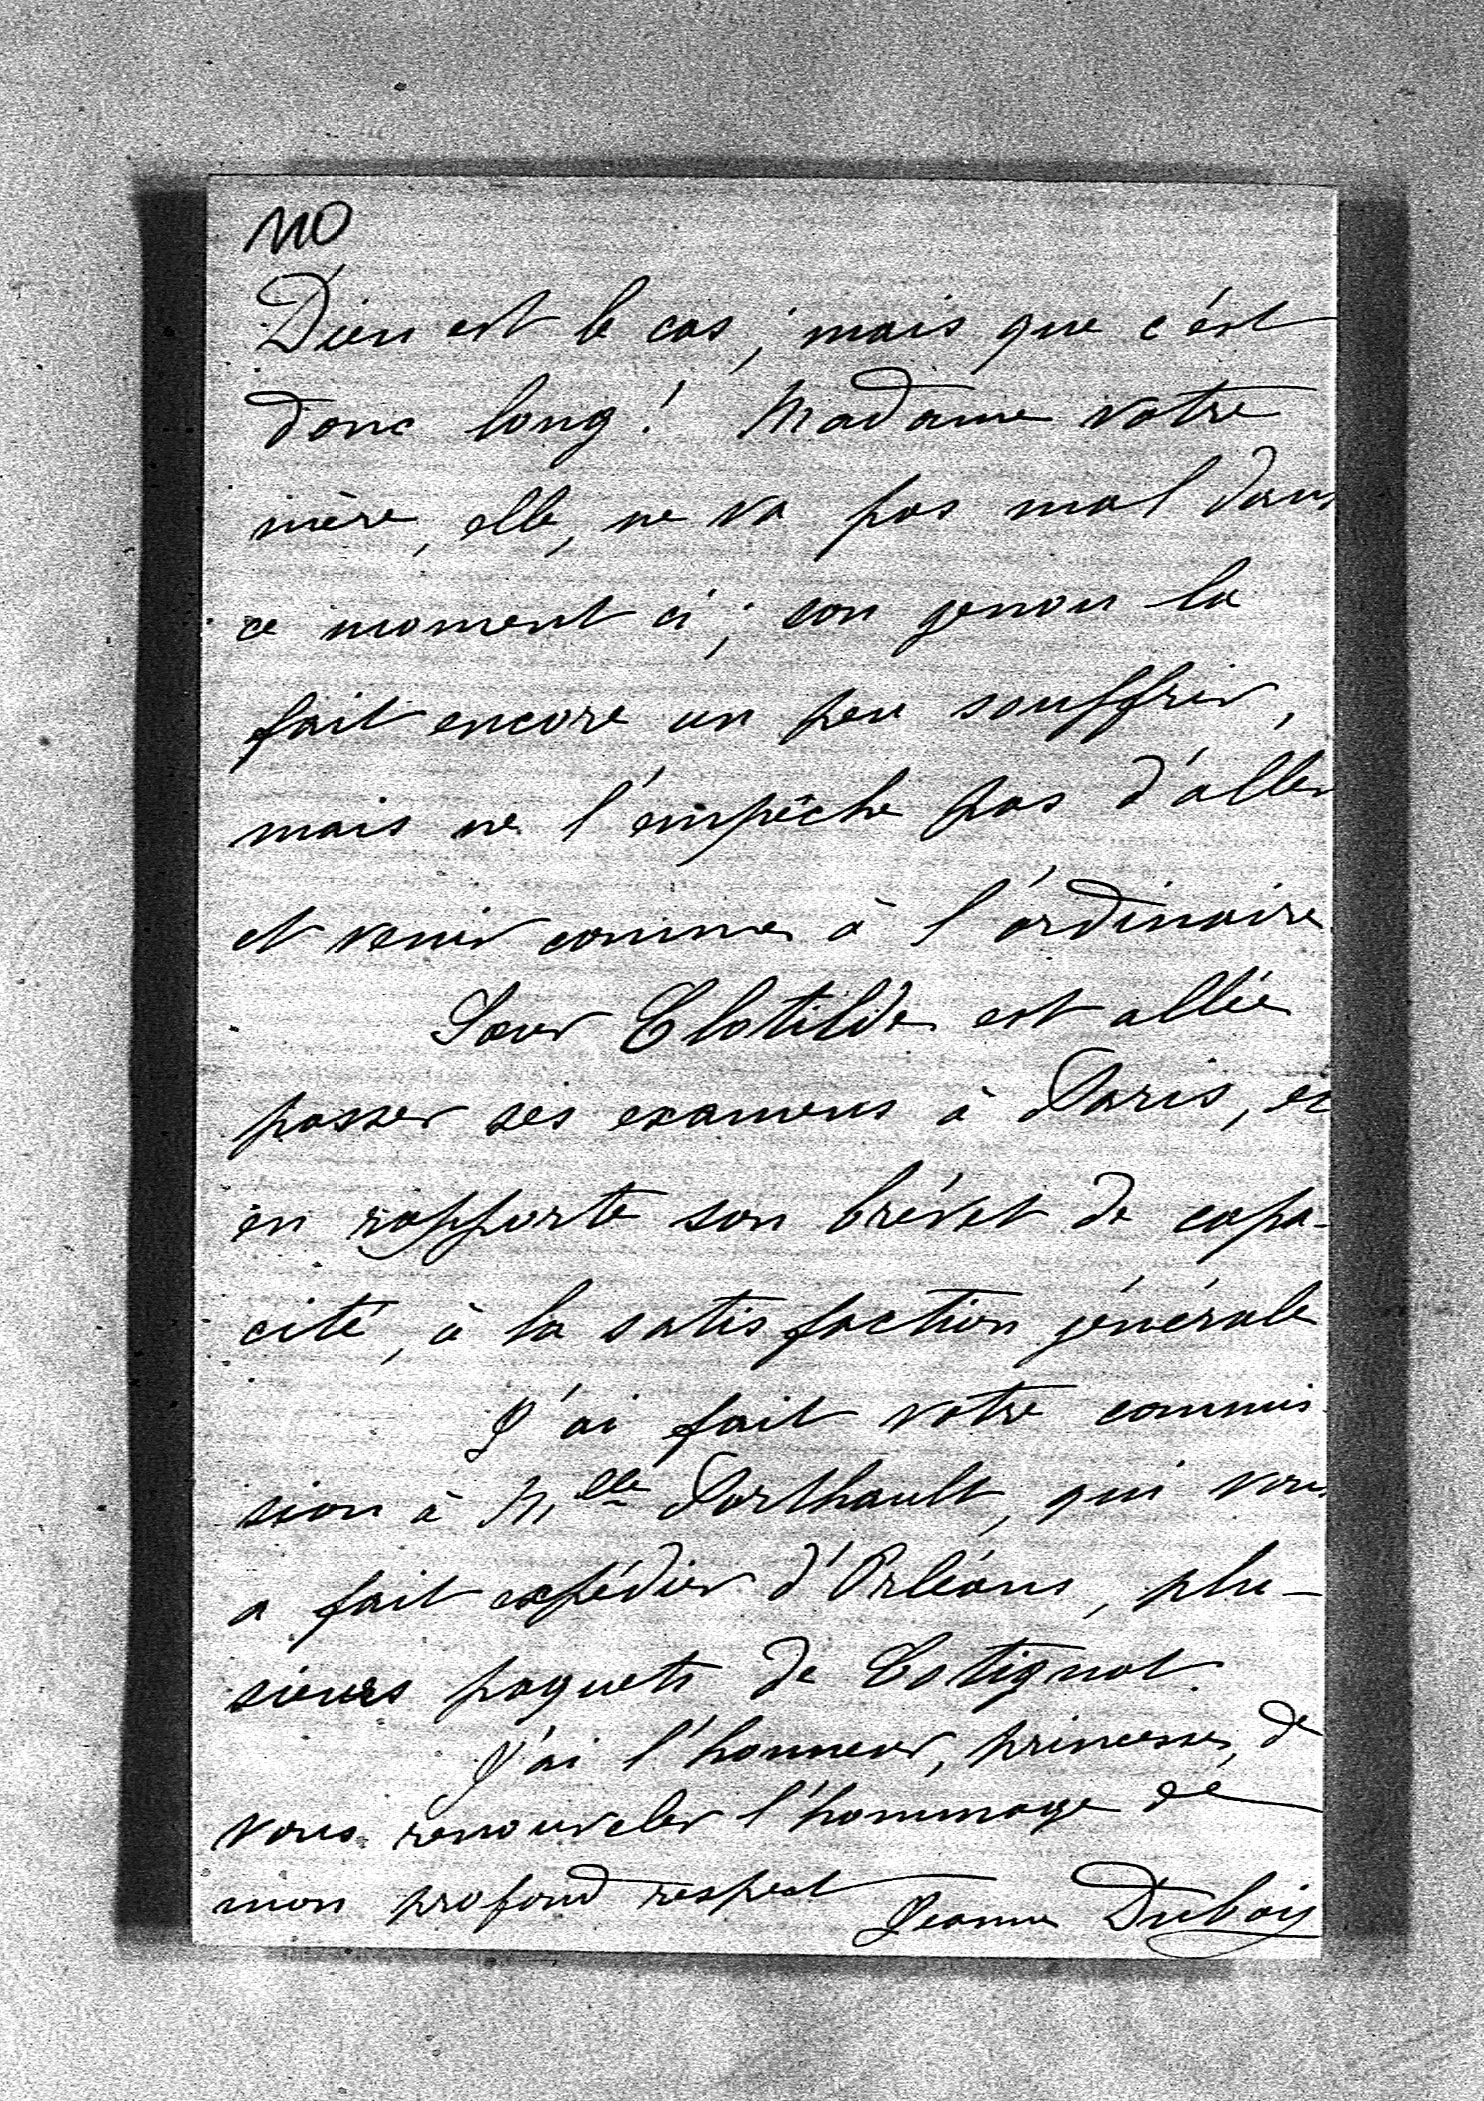 110
Dieu est le cas, mais que c'est
donc long! Madame votre
mère, elle, ne va pas mal dans
ce moment ci; son genou la
fait encore un peu souffrir,
mais ne l'empêche pas d'aller
et venir comme à l'ordinaire
Soeur Clotilde est allée
passer ses examens à Paris, et
en rapporte son brévet de capa-
cité, à la satisfaction générale
J'ai fait votre commis
sion à Mlle Porthault, qui vous
a fait expédier d'Orléans, plu-
sieurs paquets de Cotignat.
J'ai l'honneur, princesse, de
vous renouveler l'hommage de
mon profond respect Jeanne Dubois